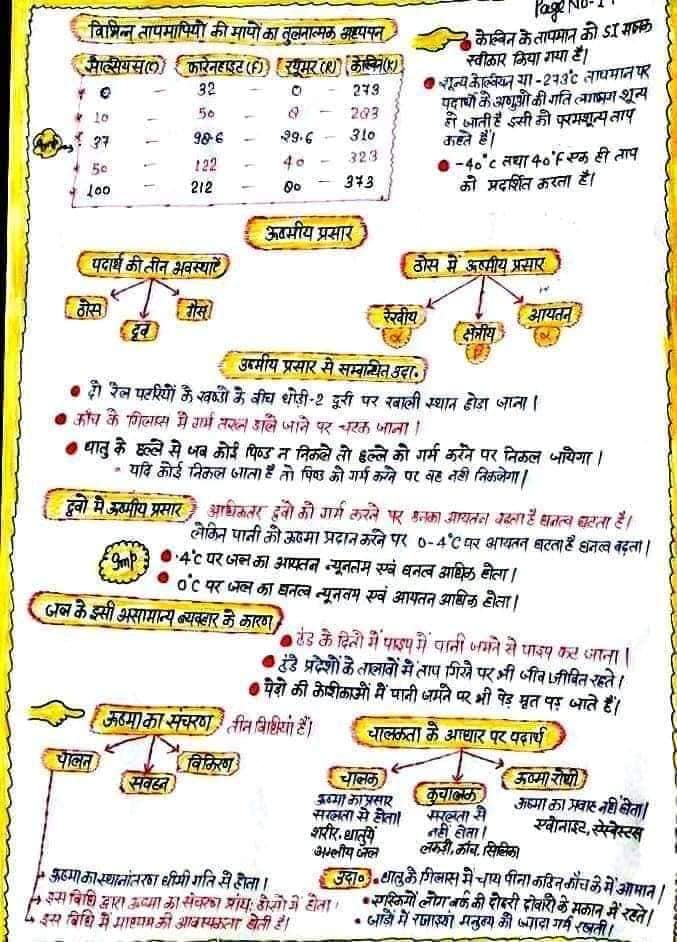 Page No-1
विभिन्न तापमापियों की मापों का तुलनात्मक अध्ययन
सेल्सियस(C) फारेनहाइट(F) रयूमर(R) केल्विन(K)
0 - 32 - 0 - 273
10 - 50 - 8 - 283
Imp 37 - 98.6 - 29.6 - 310
50 - 122 - 40 - 323
100 - 212 - 80 - 373
केल्विन के तापमान को SI मात्रक
स्वीकार किया गया है।
शून्य केल्वियन या -273°C तापमान पर
पदार्थो के अणुओं की गति लगभग शून्य
हो जाती है इसी को परमशून्य ताप
कहते हैं।
-40°C तथा 40°F एक ही ताप
को प्रदर्शित करता है।
ऊष्मीय प्रसार
पदार्थ की तीन अवस्थाएँ
ठोस द्रव गैस
ठोस में ऊष्मीय प्रसार
रेखीय क्षेत्रीय आयतन
α β α
उष्मीय प्रसार से सम्बान्धित उदा.
दो रेल पटरियों के खण्डो के बीच थोड़ी-2 दूरी पर खाली स्थान होडा जाना।
काँच के गिलास में गर्म तरल डाले जाने पर चटक जाना।
धातु के छल्ले से जब कोई पिण्ड न निकले तो छल्ले को गर्म करने पर निकल जायेगा।
यदि कोई निकल जाता है तो पिण्ड को गर्म करने पर वह नही निकलेगा।
द्रवों में ऊष्मीय प्रसार आधिकतर द्रवों को गर्म करने पर उनका आयतन बढता है घनत्व घटता है।
लेकिन पानी को ऊष्मा प्रदान करने पर 0-4°C पर आयतन घटता है घनत्व बढ़ता।
Imp 4°C पर जल का आयतन न्यूनतम एवं घनत्व आधिक होता।
0°C पर जल का घनत्व न्यूनतम एवं आयतन आधिक होता।
जल के इसी असामान्य व्यवहार के कारण
ठंड के दिनो में पाइप में पानी जमने से पाइप फट जाना।
ठंडे प्रदेशों के तालाबों में ताप गिरने पर भी जीव जीवित रहते।
पेडो की केशीकाओं में पानी जमने पर भी पेड़ मृत पड़ जाते हैं।
ऊष्मा का संचरण तीन विधियां हैं।
चालन संवहन विकिरण
चालकता के आधार पर पदार्थ
चालक कुचालक ऊष्मा रोधी
ऊष्मा का प्रसार
सरलता से होता।
शरीर, धातुयें
अम्लीय जल
सरलता से
नहीं होता।
लकड़ी, काँच, सिलिका
ऊष्मा का प्रवाह नहीं होता।
एबोनाइट, एस्बेस्टस
ऊष्मा का स्थानांतरण धीमी गति से होता।
इस विधि द्वारा ऊष्मा का संचरण प्रायः ठोसो में होता।
इस विधि में माध्यम की आवश्यकता होती है।
उदा. धातु के गिलास में चाय पीना कठिन काँच के में आसान।
एस्किमों लोग बर्फ की दोहरी दीवारी के मकान में रहते।
जाडों में रजाइयां मनुष्य को ज्यादा गर्म रखती।